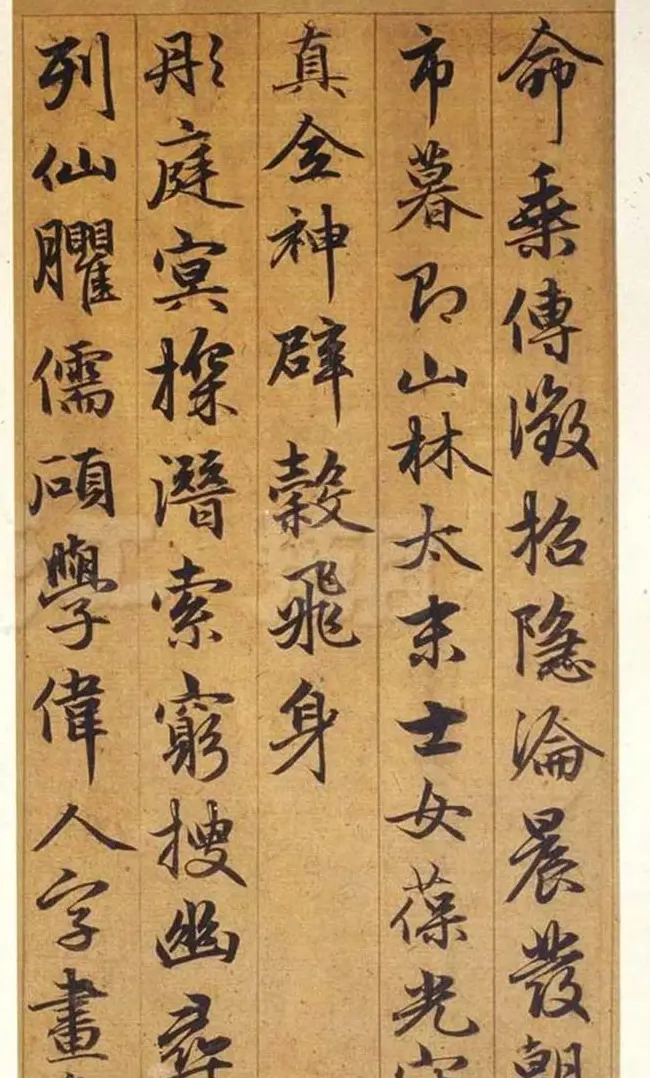 命乘傳徵招隱淪晨發朝
市暮即山林太末士女葆光
真全神辟穀飛身
彤庭冥探潛索窮搜幽尋
列仙臞儒碩學偉人字畫